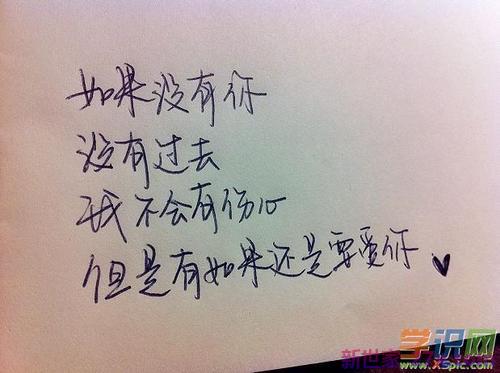 如果没有你
没有过去
我不会有伤心
但是有如果还是要爱你
新世家
学识网
www.XSpic.com